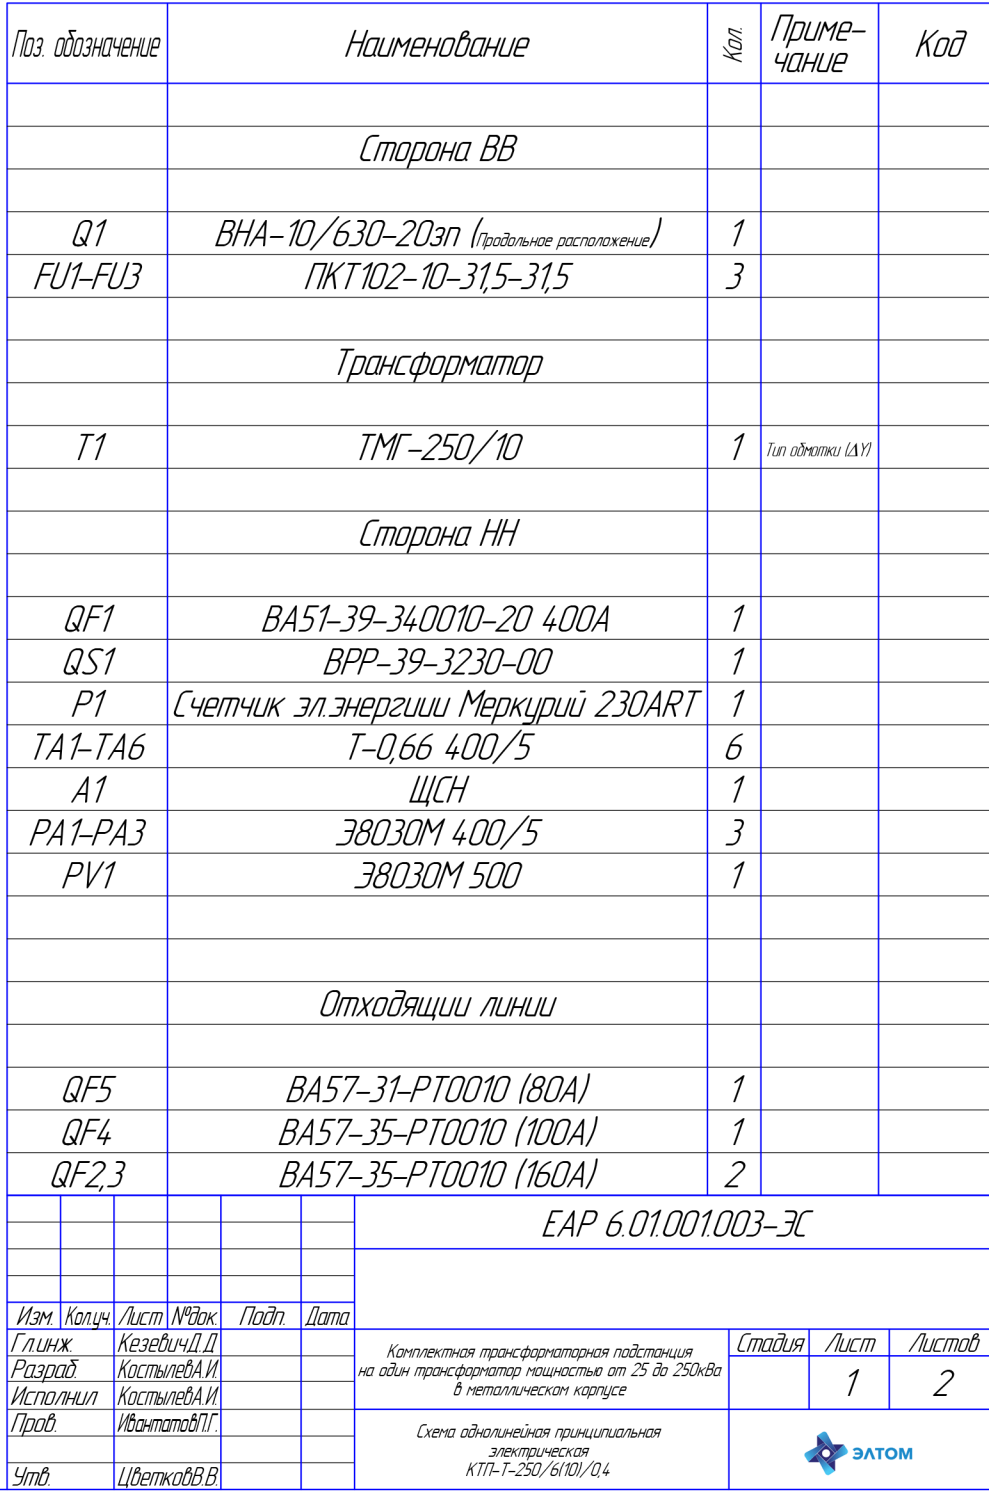 Поз. обозначение Наименование Кол. Приме-
чание Код
Сторона ВВ
Q1 ВНА-10/630-20зп (Продольное расположение) 1
FU1-FU3 ПКТ102-10-31,5-31,5 3
Трансформатор
Т1 ТМГ-250/10 1 Тип обмотки (ΔY)
Сторона НН
QF1 ВА51-39-340010-20 400А 1
QS1 ВРР-39-3230-00 1
P1 Счетчик эл.энергиии Меркурий 230ART 1
TA1-TA6 Т-0,66 400/5 6
А1 ЩСН 1
PA1-PA3 Э8030М 400/5 3
PV1 Э8030М 500 1
Отходящии линии
QF5 ВА57-31-РТ0010 (80А) 1
QF4 ВА57-35-РТ0010 (100А) 1
QF2,3 ВА57-35-РТ0010 (160А) 2
ЕАР 6.01.001.003-ЭС
Изм. Кол.уч. Лист №док. Подп. Дата
Гл.инж. КезевичД.Д
Разраб. КостылевА.И.
Исполнил КостылевА.И.
Пров. ИвантатовП.Г.
Утв. ЦветковВ.В.
Комплектная трансформаторная подстанция
на один трансформатор мощностью от 25 до 250кВа
в металлическом корпусе
Стадия Лист Листов
1 2
Схема однолинейная принципиальная
электрическая
КТП-Т-250/6(10)/0,4
ЭЛТОМ